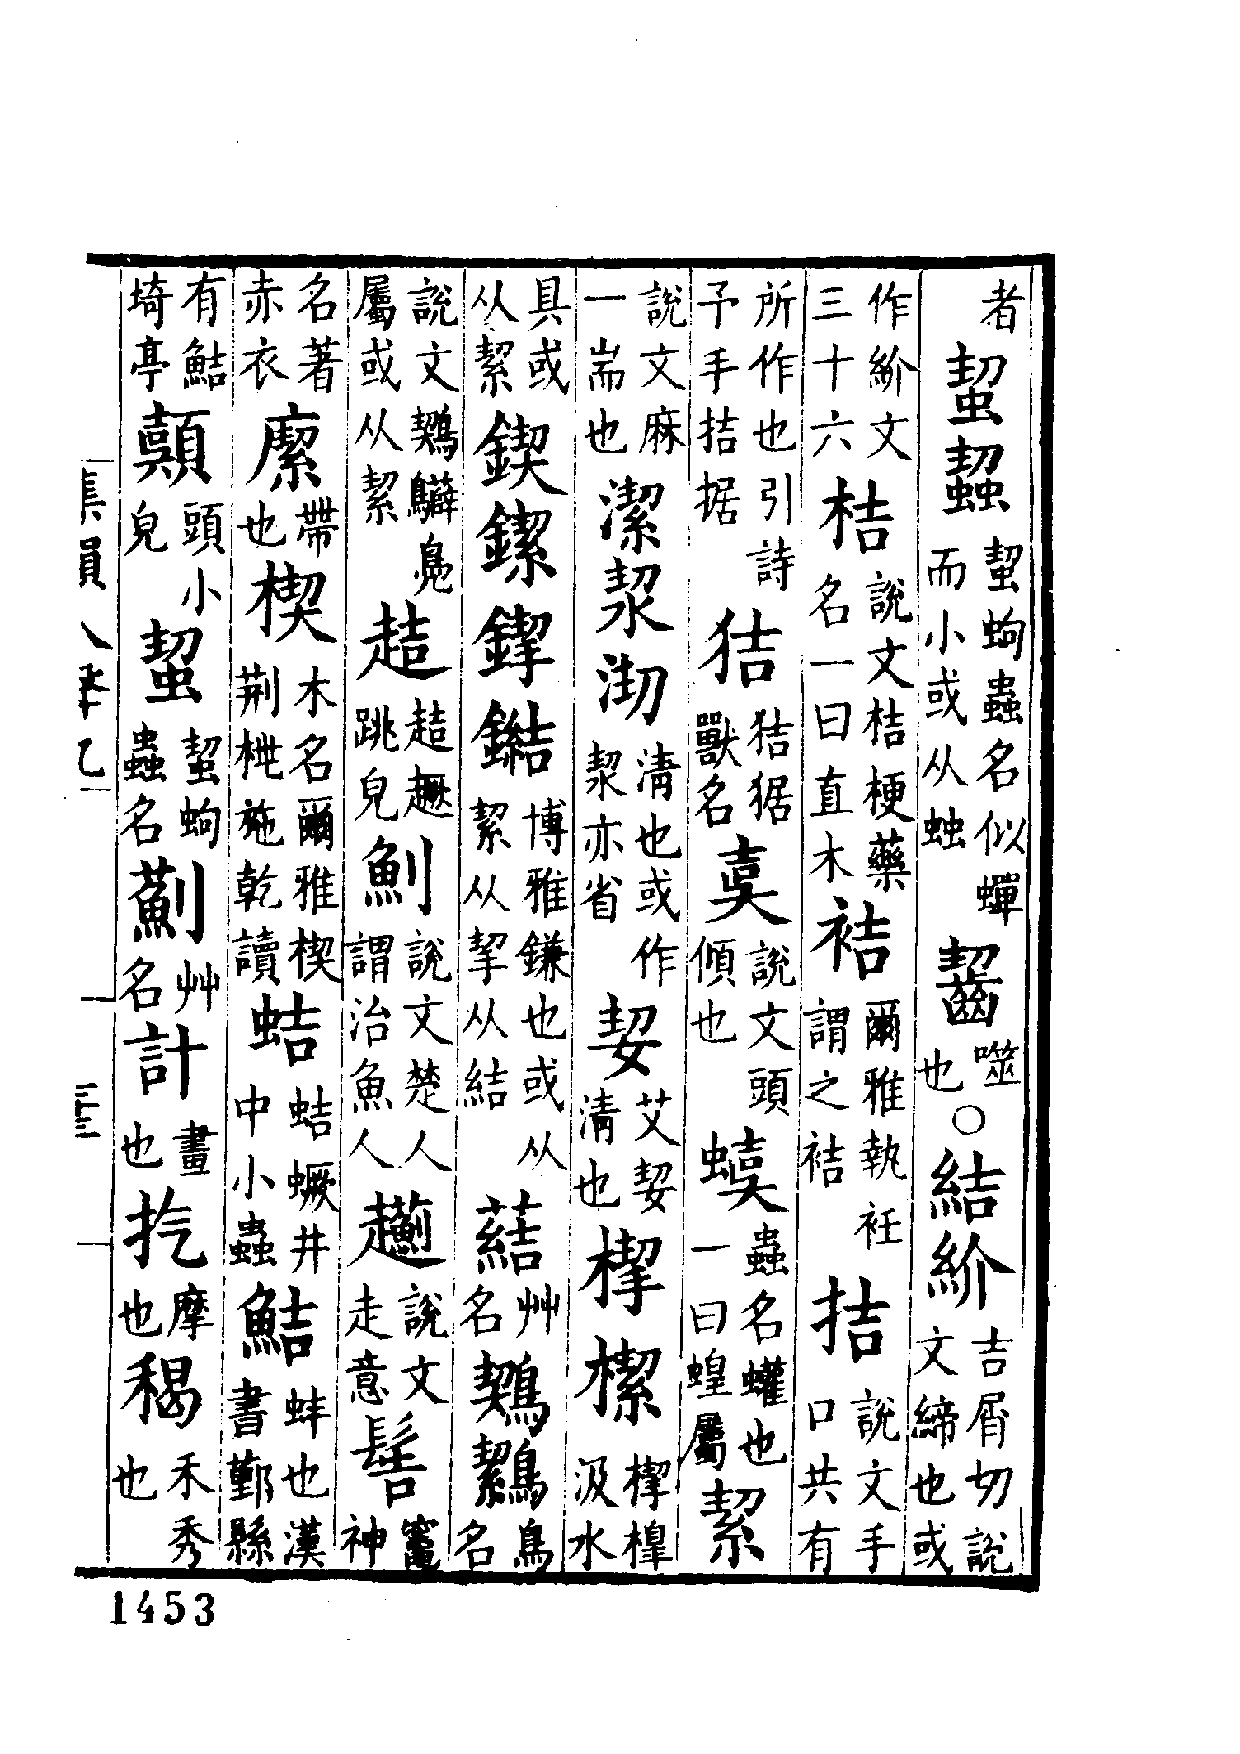 者䖯𧑐䖯蚼蟲名似蟬而小或从䖵齧噬也○結紒吉屑切說文締也或
作紒文三十六桔說文桔梗藥名一曰直木袺爾雅執衽謂之袺拮說文手口共有
所作也引詩予手拮据狤狤㹱獸名奊說文頭傾也蟲名蠸也一曰蝗屬絜
說文麻一耑也潔㓗清也或作㓗亦省契艾契清也楔㮮汲水
具或从絜鍥鐭博雅鎌也或从絜从挈从結䓤艸名鳥名
說文屬或从絜趌趌趨跳皃魝說文楚人謂治魚人說文走意髻竈神
名著赤衣帶也楔木名爾雅楔荆桃施乾讀蛣蛣蟩井中小蟲鮚蚌也漢書鄞縣
有鮚埼亭頭小皃䖯䖯蚼蟲名薊艸名計畫也扢摩也稭禾秀也
集韻入聲九
1453